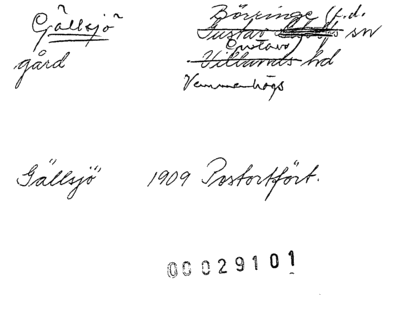 Gällsjö Börringe (f.d.
Gustav Adolfs sn
Gustav)
gård Villands hd
Vemmenhögs
Gällsjö 1909 Postortfört.
00029101